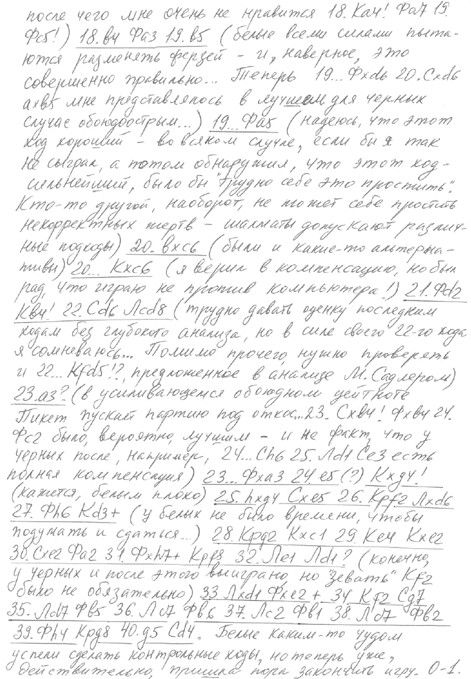 после чего мне очень не нравится 18.Ка4! Фа7 19.
Фс5!) 18.в4 Фаз 19.в5 (белые всеми силами пыта-
ются разменять ферзей - и, наверное, это
совершенно правильно... Теперь 19...Ф×d6 20.Сxd6
ахв5 мне представлялось в лучшем для черных
случае обоюдоострым...) 19...Фа5 (надеюсь, что этот
ход хороший - во всяком случае, если бы я так
не сыграл, а потом обнаружил, что этот ход-
сильнейший, было бы "трудно себе это простить".
Кто-то другой, наоборот, не может себе простить
некорректных жертв - шахматы допускают различ-
ные подходы) 20.вхс6 (были и какие-то альтерна-
тивы) 20... Кхс6 (я верил в компенсацию, но был
рад, что играю не против компьютера!) 21.Фd2
Кв4! 22.Cd6 Лcd8 (трудно давать оценку последним
ходам без глубокого анализа, но в силе своего 22-го хода
я сомневаюсь... Помимо прочего, нужно проверять
и 22... Kfd5!?, предложенное в анализе М.Садлером)
23.аз? (в усиливающемся обоюдном цейтноте
Пикет пускает партию под откос... 23. Cxв4! Фхв4 24.
Фс2 было, вероятно, лучшим - и не факт, что у
черных после, например, 24...Ch6 25.Лd1 Се3 есть
полная компенсация) 23... Фхаз 24 е5(?) Кхg4!
(кажется, белым плохо) 25.hxg4 Схе5 26.Kpf2 Лxd6
27.Фh6 Kd3+ (у белых не было времени, чтобы
подумать и сдаться...) 28.Kpg2 Кхс1 29 Ке4 Кхе2
30.Схе2 Фа2 31.Фхh7+ Kpf8 32.Ле1 Лd1? (конечно,
у черных и после этого выиграно, но "зевать" Kf2
было не обязательно) 33 Лхd1 Фхе2+ 34 Kf2 Cg7
35.Лd7 Фв5 36.Лс7 Фв6 37.Лс2 Фв1 38.Лd7 Фв2
39.Фh4 Kpg8 40.g5 Cd4. Белые каким-то чудом
успели сделать контрольные ходы, но теперь уже,
действительно, пришла пора закончить игру. 0-1.